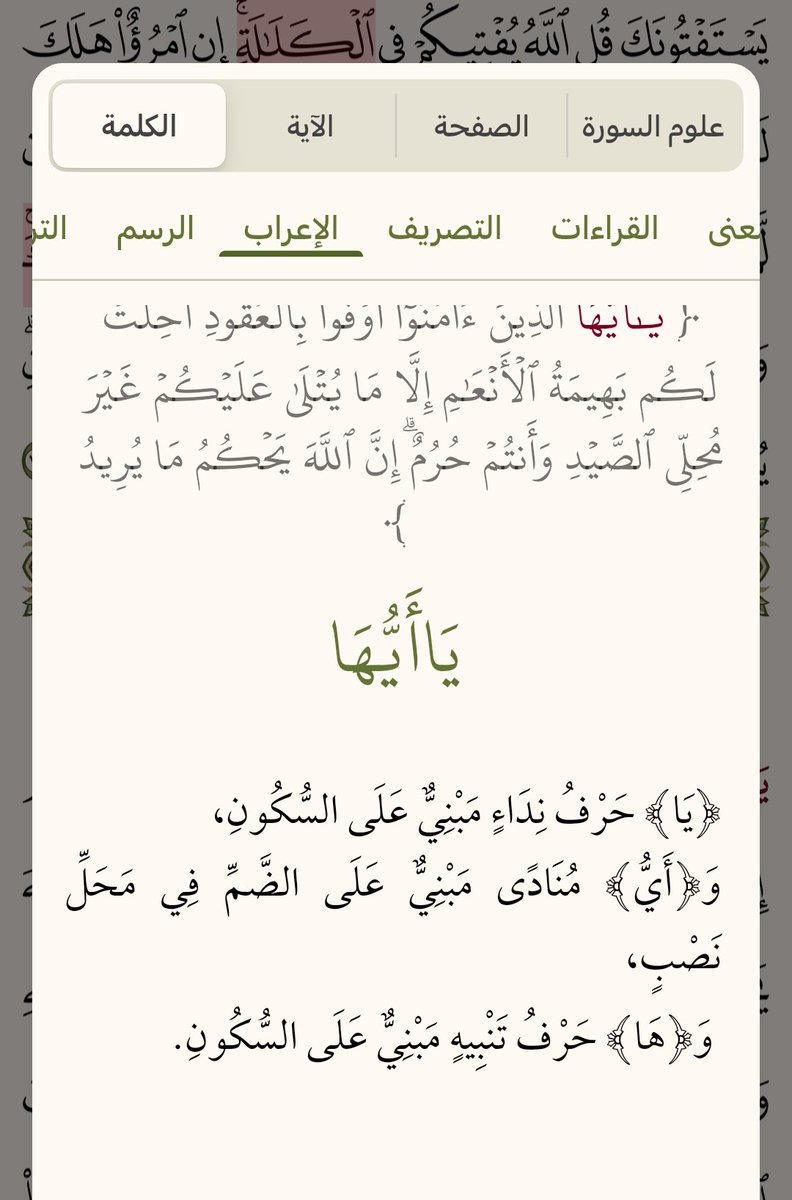 يَسۡتَفۡتُونَكَ قُلِ ٱللَّهُ يُفۡتِيكُمۡ فِي ٱلۡكَلَٰلَةِۚ إِنِ ٱمۡرُؤٌاْ هَلَكَ
علوم السورة الصفحة الآية الكلمة
القراءات التصريف الإعراب الرسم
﴿ يَٰٓأَيُّهَا ٱلَّذِينَ ءَامَنُوٓاْ أَوۡفُواْ بِٱلۡعُقُودِۚ أُحِلَّتۡ
لَكُم بَهِيمَةُ ٱلۡأَنۡعَٰمِ إِلَّا مَا يُتۡلَىٰ عَلَيۡكُمۡ غَيۡرَ
مُحِلِّي ٱلصَّيۡدِ وَأَنتُمۡ حُرُمٌۗ إِنَّ ٱللَّهَ يَحۡكُمُ مَا يُرِيدُ
﴾
يَاأَيُّهَا
﴿يَا﴾ حَرْفُ نِدَاءٍ مَبْنِيٌّ عَلَى السُّكُونِ،
وَ﴿أَيُّ﴾ مُنَادًى مَبْنِيٌّ عَلَى الضَّمِّ فِي مَحَلِّ
نَصْبٍ،
وَ﴿هَا﴾ حَرْفُ تَنْبِيهٍ مَبْنِيٌّ عَلَى السُّكُونِ.